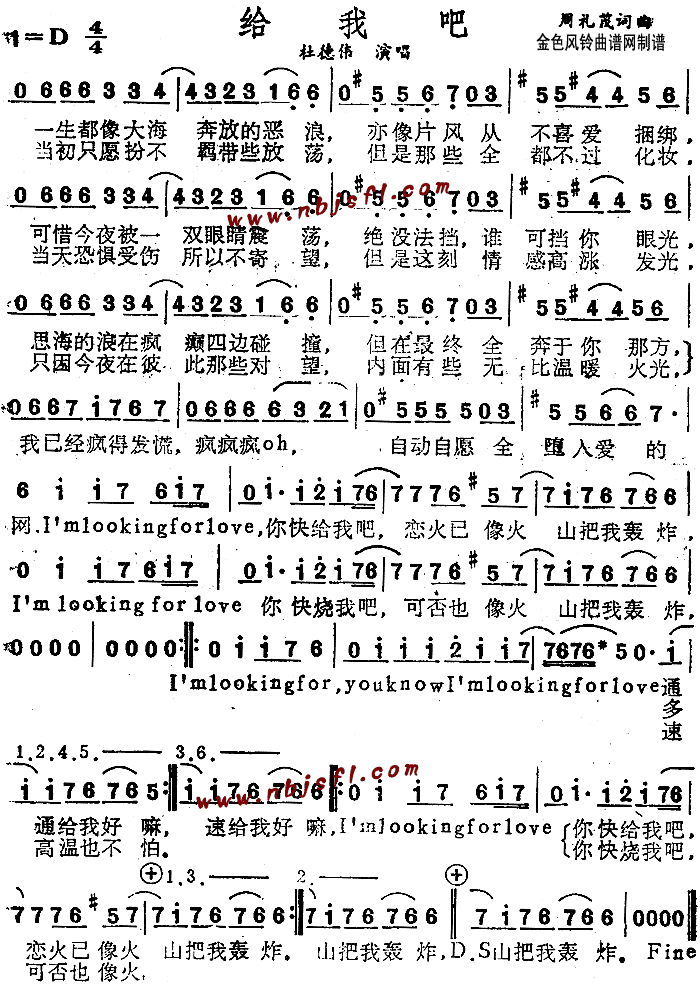 给我吧
1=D 4/4
周礼茂词曲
杜德伟 演唱
金色风铃曲谱网制谱
0 6 6 6 3 3 4 | 4 3 2 3 1 6 6 | 0 #5 5 6 7 0 3 | 5 5 #4 4 5 6
一生都像大海 奔放的恶浪, 亦像片风从 不喜爱 捆绑,
当初只愿扮不 羁带些放荡, 但是那些全 都不过 化妆,
0 6 6 6 3 3 4 | 4 3 2 3 1 6 6 | 0 #5 5 6 7 0 3 | 5 5 #4 4 5 6
www.nbjsfl.com
可惜今夜被一 双眼睛震荡, 绝没法挡,谁 可挡你 眼光,
当天恐惧受伤 所以不寄望, 但是这刻情 感高涨 发光,
0 6 6 6 3 3 4 | 4 3 2 3 1 6 6 | 0 #5 5 6 7 0 3 | 5 5 #4 4 5 6
思海的浪在疯 癫四边碰撞, 但在最终全 奔于你 那方,
只因今夜在彼 此那些对望, 内面有些无 比温暖 火光,
0 6 6 7 i 7 6 7 | 0 6 6 6 6 3 2 1 | 0 #5 5 5 5 0 3 | #5 5 6 6 7·
我已经疯得发慌,疯疯疯oh, 自动自愿全 堕入爱的
6 i i 7 6 i 7 | 0 i· i 2 i 7 6 | 7 7 7 6 #5 7 | 7 i 7 6 7 6 6
网.I'mlookingforlove,你快给我吧, 恋火已像火 山把我轰炸,
0 i i 7 6 i 7 | 0 i· i 2 i 7 6 | 7 7 7 6 #5 7 | 7 i 7 6 7 6 6
I'm looking for love 你快烧我吧, 可否也像火 山把我轰炸,
0 0 0 0 | 0 0 0 0 :‖: 0 i i 7 6 | 0 i i i 2 i 7 | 7 6 7 6 * 5 0· i
I'mlookingfor,youknowI'mlookingforlove通
多
速
1.2.4.5. 3.6.
i i 7 6 7 6 5 :‖ i i 7 6 7 6 6 :‖: 0 i i 7 6 i 7 | 0 i· i 2 i 7 6
www.nbjsfl.com
通给我好嘛, 速给我好嘛,I'mlookingforlove 你快给我吧,
高温也不怕。 你快烧我吧,
1.3. 2.
7 7 7 6 #5 7 | 7 i 7 6 7 6 6 :‖ 7 i 7 6 7 6 6 ‖ 7 i 7 6 7 6 6 | 0 0 0 0
恋火已像火 山把我轰炸。山把我轰炸,D.S山把我轰炸。Fine
可否也像火